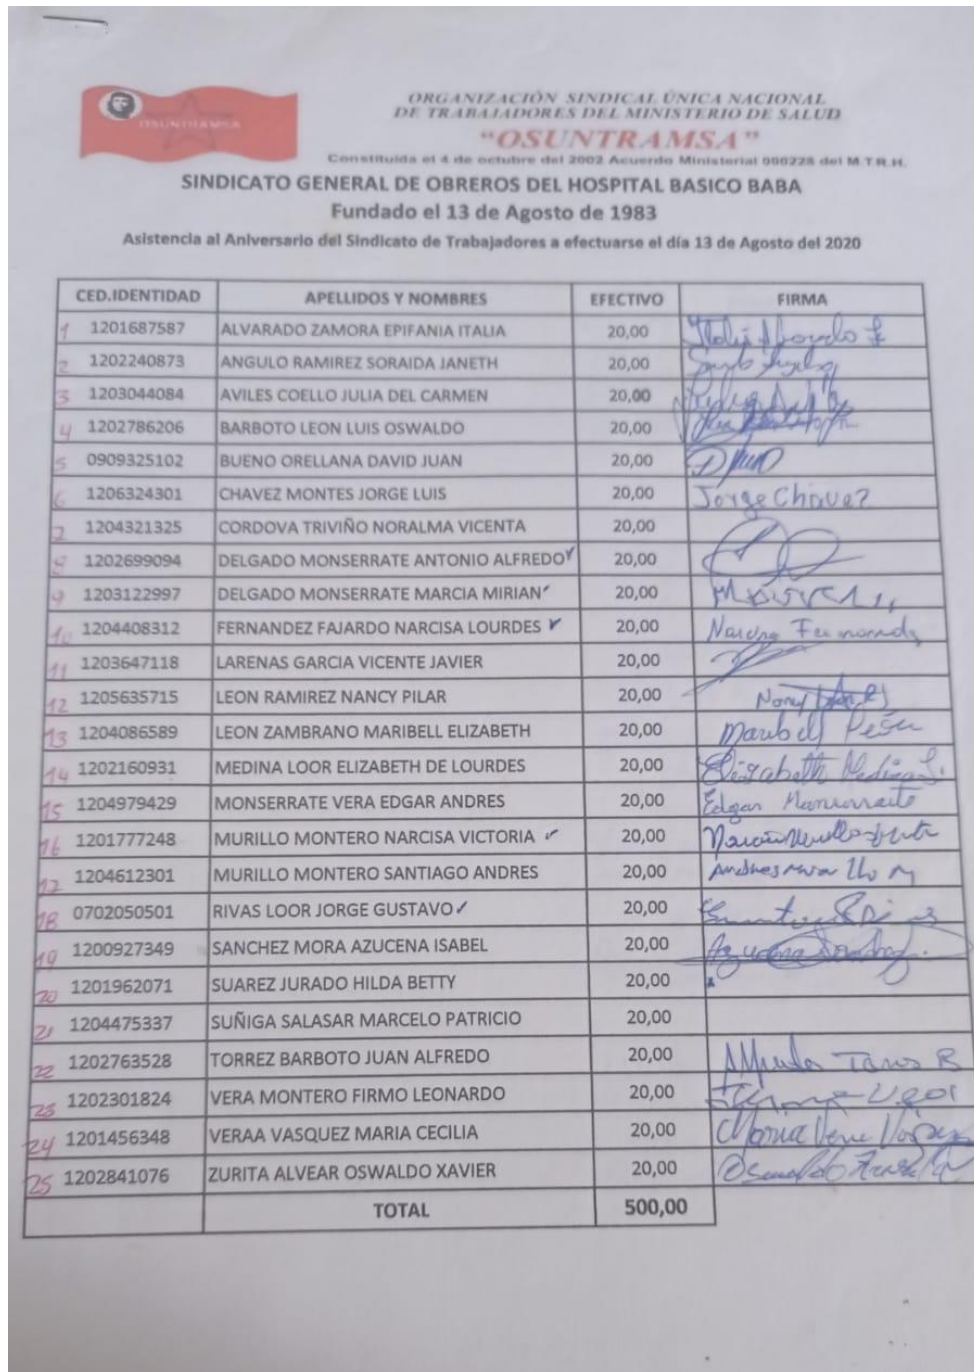 OSUNTRAMSA
ORGANIZACIÓN SINDICAL ÚNICA NACIONAL
DE TRABAJADORES DEL MINISTERIO DE SALUD
"OSUNTRAMSA"
Constituida el 4 de octubre del 2002 Acuerdo Ministerial 000228 del M.T.R.H.
SINDICATO GENERAL DE OBREROS DEL HOSPITAL BASICO BABA
Fundado el 13 de Agosto de 1983
Asistencia al Aniversario del Sindicato de Trabajadores a efectuarse el día 13 de Agosto del 2020
CED.IDENTIDAD APELLIDOS Y NOMBRES EFECTIVO FIRMA
1 1201687587 ALVARADO ZAMORA EPIFANIA ITALIA 20,00
2 1202240873 ANGULO RAMIREZ SORAIDA JANETH 20,00
3 1203044084 AVILES COELLO JULIA DEL CARMEN 20,00
4 1202786206 BARBOTO LEON LUIS OSWALDO 20,00
5 0909325102 BUENO ORELLANA DAVID JUAN 20,00
6 1206324301 CHAVEZ MONTES JORGE LUIS 20,00 Jorge Chavez
7 1204321325 CORDOVA TRIVIÑO NORALMA VICENTA 20,00
8 1202699094 DELGADO MONSERRATE ANTONIO ALFREDO 20,00
9 1203122997 DELGADO MONSERRATE MARCIA MIRIAN 20,00
10 1204408312 FERNANDEZ FAJARDO NARCISA LOURDES 20,00
11 1203647118 LARENAS GARCIA VICENTE JAVIER 20,00
12 1205635715 LEON RAMIREZ NANCY PILAR 20,00
13 1204086589 LEON ZAMBRANO MARIBELL ELIZABETH 20,00
14 1202160931 MEDINA LOOR ELIZABETH DE LOURDES 20,00 Elizabeth Medina L.
15 1204979429 MONSERRATE VERA EDGAR ANDRES 20,00 Edgar
16 1201777248 MURILLO MONTERO NARCISA VICTORIA 20,00
17 1204612301 MURILLO MONTERO SANTIAGO ANDRES 20,00
18 0702050501 RIVAS LOOR JORGE GUSTAVO 20,00
19 1200927349 SANCHEZ MORA AZUCENA ISABEL 20,00
20 1201962071 SUAREZ JURADO HILDA BETTY 20,00
21 1204475337 SUÑIGA SALASAR MARCELO PATRICIO 20,00
22 1202763528 TORREZ BARBOTO JUAN ALFREDO 20,00
23 1202301824 VERA MONTERO FIRMO LEONARDO 20,00
24 1201456348 VERAA VASQUEZ MARIA CECILIA 20,00
25 1202841076 ZURITA ALVEAR OSWALDO XAVIER 20,00
TOTAL 500,00